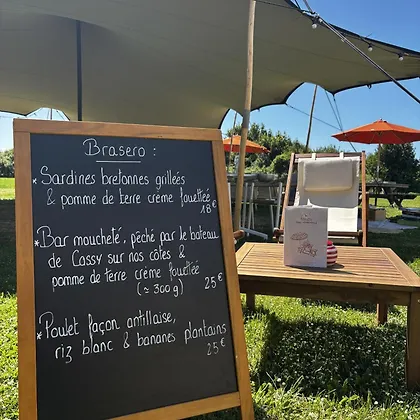 Brasero :
* Sardines bretonnes grillées
& pomme de terre crème fouettée
18€
* Bar moucheté, pêché par le bateau
de Cassy sur nos côtes &
pomme de terre crème fouettée
(≃ 300 g) 25€
* Poulet façon antillaise,
riz blanc & bananes plantains
25€